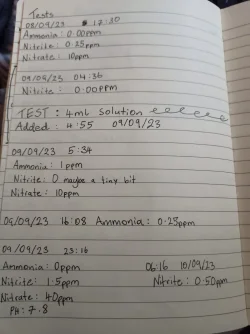 Tests
08/09/23 17:20
Ammonia: 0.00ppm
Nitrite: 0.25ppm
Nitrate: 10ppm
09/09/23 04:36
Nitrite: 0.00ppm
TEST: 4ml Solution
Added: 4:55 09/09/23
09/09/23 5:34
Ammonia: 1ppm
Nitrite: 0 maybe a tiny bit
Nitrate: 10ppm
09/09/23 16:08 Ammonia: 0.25ppm
09/09/23 23:16
Ammonia: 0ppm
Nitrite: 1.5ppm
Nitrate: 40ppm
PH: 7.8
06:16 10/09/23
Nitrite: 0.50ppm